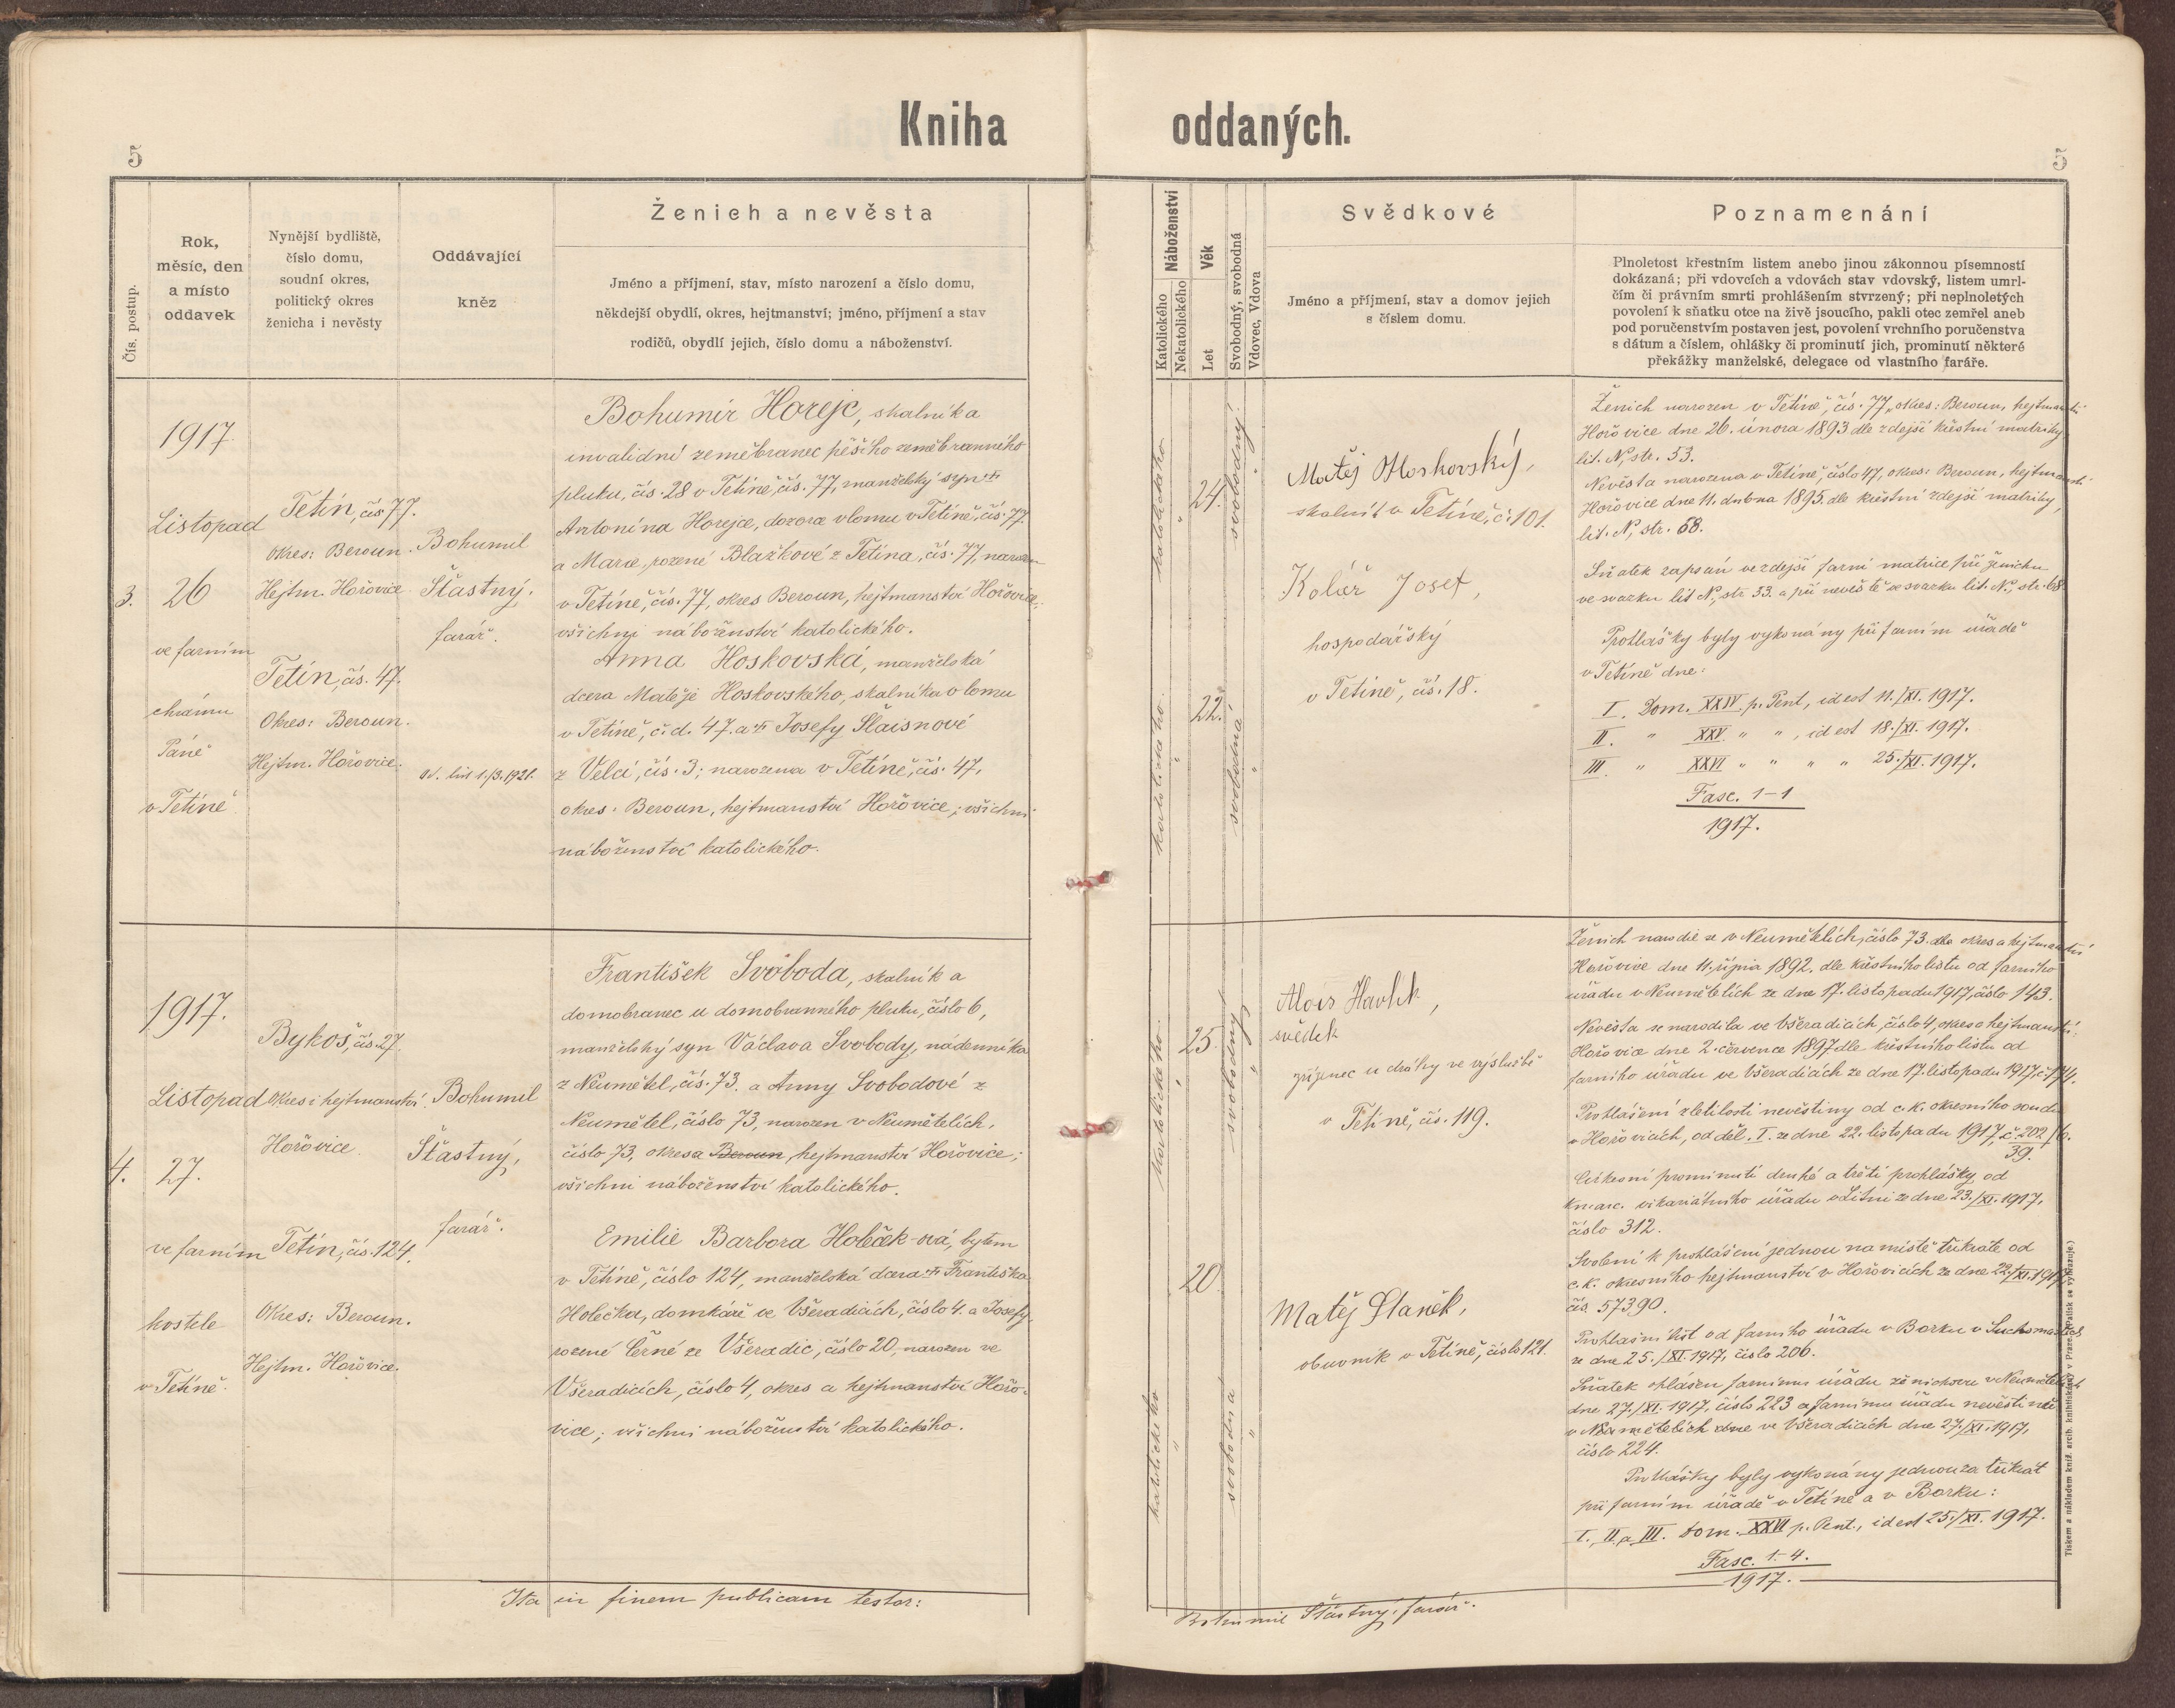 Kniha oddaných.
5
5
Čís. postup.
Rok,
měsíc, den
a místo
oddavek
Nynější bydliště,
číslo domu,
soudní okres,
politický okres
ženicha i nevěsty
Oddávající
kněz
Ženich a nevěsta
Jméno a příjmení, stav, místo narození a číslo domu,
někdejší obydlí, okres, hejtmanství; jméno, příjmení a stav
rodičů, obydlí jejich, číslo domu a náboženství.
Náboženství
Katolického
Nekatolického
Věk
Let
Svobodný, svobodná
Vdovec, Vdova
Svědkové
Jméno a příjmení, stav a domov jejich
s číslem domu.
Poznamenání
Plnoletost křestním listem anebo jinou zákonnou písemností
dokázaná; při vdovcích a vdovách stav vdovský, listem umrl-
čím či právním smrti prohlášením stvrzený; při neplnoletých
povolení k sňatku otce na živě jsoucího, pakli otec zemřel aneb
pod poručenstvím postaven jest, povolení vrchního poručenstva
s dátum a číslem, ohlášky či prominutí jich, prominutí některé
překážky manželské, delegace od vlastního faráře.
3.
1917.
Listopad
26
ve farním
chrámu
Páně
v Tetíně
Tetín, čís. 77.
Okres: Beroun.
Hejtm. Hořovice
Tetín, čís. 47.
Okres: Beroun.
Hejtm. Hořovice.
Bohumil
Šťastný,
farář.
Od. list 1./3. 1921.
Bohumír Horejc, skalník a
invalidní zeměbranec pěšího zeměbranného
pluku, čís. 28 v Tetíně, čís. 77, manželský syn †
Antonína Horejce, dozorce v lomu v Tetíně, čís. 77.
a Marie, rozené Blažkové z Tetína, čís. 77, narozen
v Tetíně, čís. 77, okres Beroun, hejtmanství Hořovice;
všichni náboženství katolického.
Anna Hoskovská, manželská
dcera Matěje Hoskovského, skalníka v lomu
v Tetíně, č. d. 47. a † Josefy Šlaisnové
z Velcí, čís. 3; narozena v Tetíně, čís. 47,
okres: Beroun, hejtmanství Hořovice; všichni
náboženství katolického.
katolického
"
24.
svobodný
"
katolického
"
22.
svobodná
"
Matěj Hoskovský,
skalník v Tetíně, č. 101.
Kolář Josef,
hospodářský
v Tetíně, čís. 18.
Ženich narozen v Tetíně, čís. 77, okres: Beroun, hejtmanství
Hořovice dne 26. února 1893 dle zdejší křestní matriky
lit. N, str. 53.
Nevěsta narozena v Tetíně, číslo 47, okres: Beroun, hejtmanství
Hořovice dne 11. dubna 1895. dle křestní zdejší matriky,
lit. N, str. 68.
Sňatek zapsán ve zdejší farní matrice při ženichu
ve svazku lit. N, str. 53. a při nevěstě ve svazku lit. N, str. 68.
Prohlášky byly vykonány při farním úřadě
v Tetíně dne:
I. Dom. XXIV. p. Pent, id est 11./XI. 1917.
II. " XXV " " , id est 18./XI. 1917.
III. " XXVI " " " " 25./XI. 1917.
Fasc. 1-1
1917.
4.
1917.
Listopad
27.
ve farním
kostele
v Tetíně.
Bykoš, čís. 27.
Okres i hejtmanství
Hořovice.
Tetín, čís. 124.
Okres: Beroun.
Hejtm. Hořovice.
Bohumil
Šťastný,
farář.
František Svoboda, skalník a
domobranec u domobranného pluku, číslo 6,
manželský syn Václava Svobody, nádenníka
z Neumětel, čís. 73. a Anny Svobodové z
Neumětel, číslo 73, narozen v Neumětelích,
číslo 73, okres a Beroun, hejtmanství Hořovice;
všichni náboženství katolického.
Emilie Barbora Holečk-ová, bytem
v Tetíně, číslo 124, manželská dcera † Františka
Holečka, domkáře ve Všeradicích, číslo 4. a Josefy,
rozené Černé ze Všeradic, číslo 20, narozen ve
Všeradicích, číslo 4, okres a hejtmanství Hořo-
vice; všichni náboženství katolického.
katolického
"
25.
svobodný
"
katolického
"
20.
svobodná
"
Alois Havlík,
svědek
zřízenec u dráhy ve výslužbě
v Tetíně, čís. 119.
Matěj Staněk,
obuvník v Tetíně, číslo 121.
Ženich narodil se v Neumětelích, číslo 73. dle okres a hejtmanství
Hořovice dne 11. října 1892. dle křestního listu od farního
úřadu v Neumětelích ze dne 17. listopadu 1917, číslo 143.
Nevěsta se narodila ve Všeradicích, číslo 4, okres a hejtmanství:
Hořovice dne 2. července 1897 dle křestního listu od
farního úřadu ve Všeradicích ze dne 17. listopadu 1917, č. 174.
Prohlášení zletilosti nevěstiny od c. k. okresního soudu
v Hořovicích, odděl. I. ze dne 22. listopadu 1917, č. 202/6.
39.
Církevní prominutí druhé a třetí prohlášky od
kn. arc. vikariátního úřadu v Litni ze dne 23./XI. 1917,
číslo 312.
Svolení k prohlášení jednou na místě třikráte od
c. k. okresního hejtmanství v Hořovicích ze dne 22./XI. 1917,
čís. 57390.
Prohlašní list od farního úřadu v Borku v Suchomastech
ze dne 25./XI. 1917, číslo 206.
Sňatek ohlášen farnímu úřadu ženichovu v Neumětelích
dne 27./XI. 1917, číslo 223 a farnímu úřadu nevěstinu
v Neumětelích dne ve Všeradicích dne 27./XI. 1917,
číslo 224.
Prohlášky byly vykonány jednou za třikrát
při farním úřadě v Tetíně a v Borku:
I., II. a III. Dom. XXVI p. Pent., id est 25./XI. 1917.
Fasc. 1-4.
1917.
Ita in finem publicam testor:
Bohumil Šťastný, farář.
Tiskem a nákladem kníž. arcib. knihtiskárny v Praze. (Patisk se vyhrazuje.)